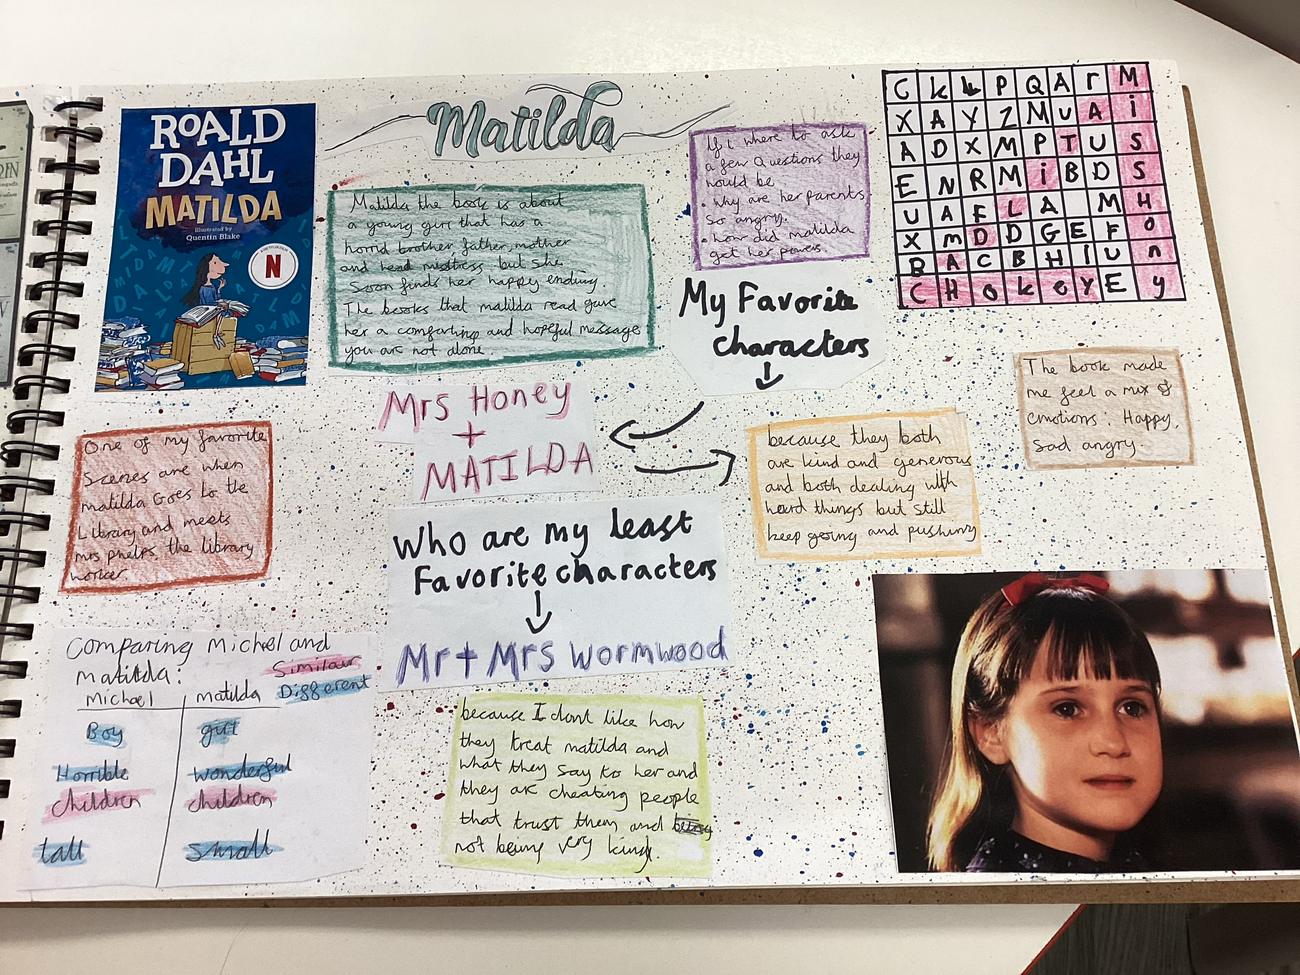 ROALD
DAHL
MATILDA
Illustrated by
Quentin Blake
N
Matilda
Matilda the book is about
a young girl that has a
horrid brother father, mother
and head misstress but she
Soon finds her happy ending.
The books that matilda read gave
her a comforting and hopeful message
you are not alone.
If i where to ask
a few Questions they
would be
• why are her parents
so angry.
• how did matilda
get her powers
C K L P Q A T M
X A Y Z M U A i
A D X M P T U S
E N R M i B D S
U A F L A M H
X M D D G E F O
B A C B H I U n
C H O K E Y E y
My Favorite
characters
Mrs Honey
+
MATILDA
because they both
are kind and generous
and both dealing with
hard things but still
keep going and pushing
The book made
me feel a mix of
emotions: Happy,
sad angry.
One of my favorite
Scenes are when
matilda Goes to the
Library and meets
mrs phelps the library
worker.
Who are my least
Favorite characters
Mr + Mrs Wormwood
because I dont like how
they treat matilda and
what they say to her and
they are cheating people
that trust them and
not being very kind.
Comparing Michel and
Matilda:
Similair
Different
Michael Matilda
Boy girl
Horrible wonderful
children children
tall small